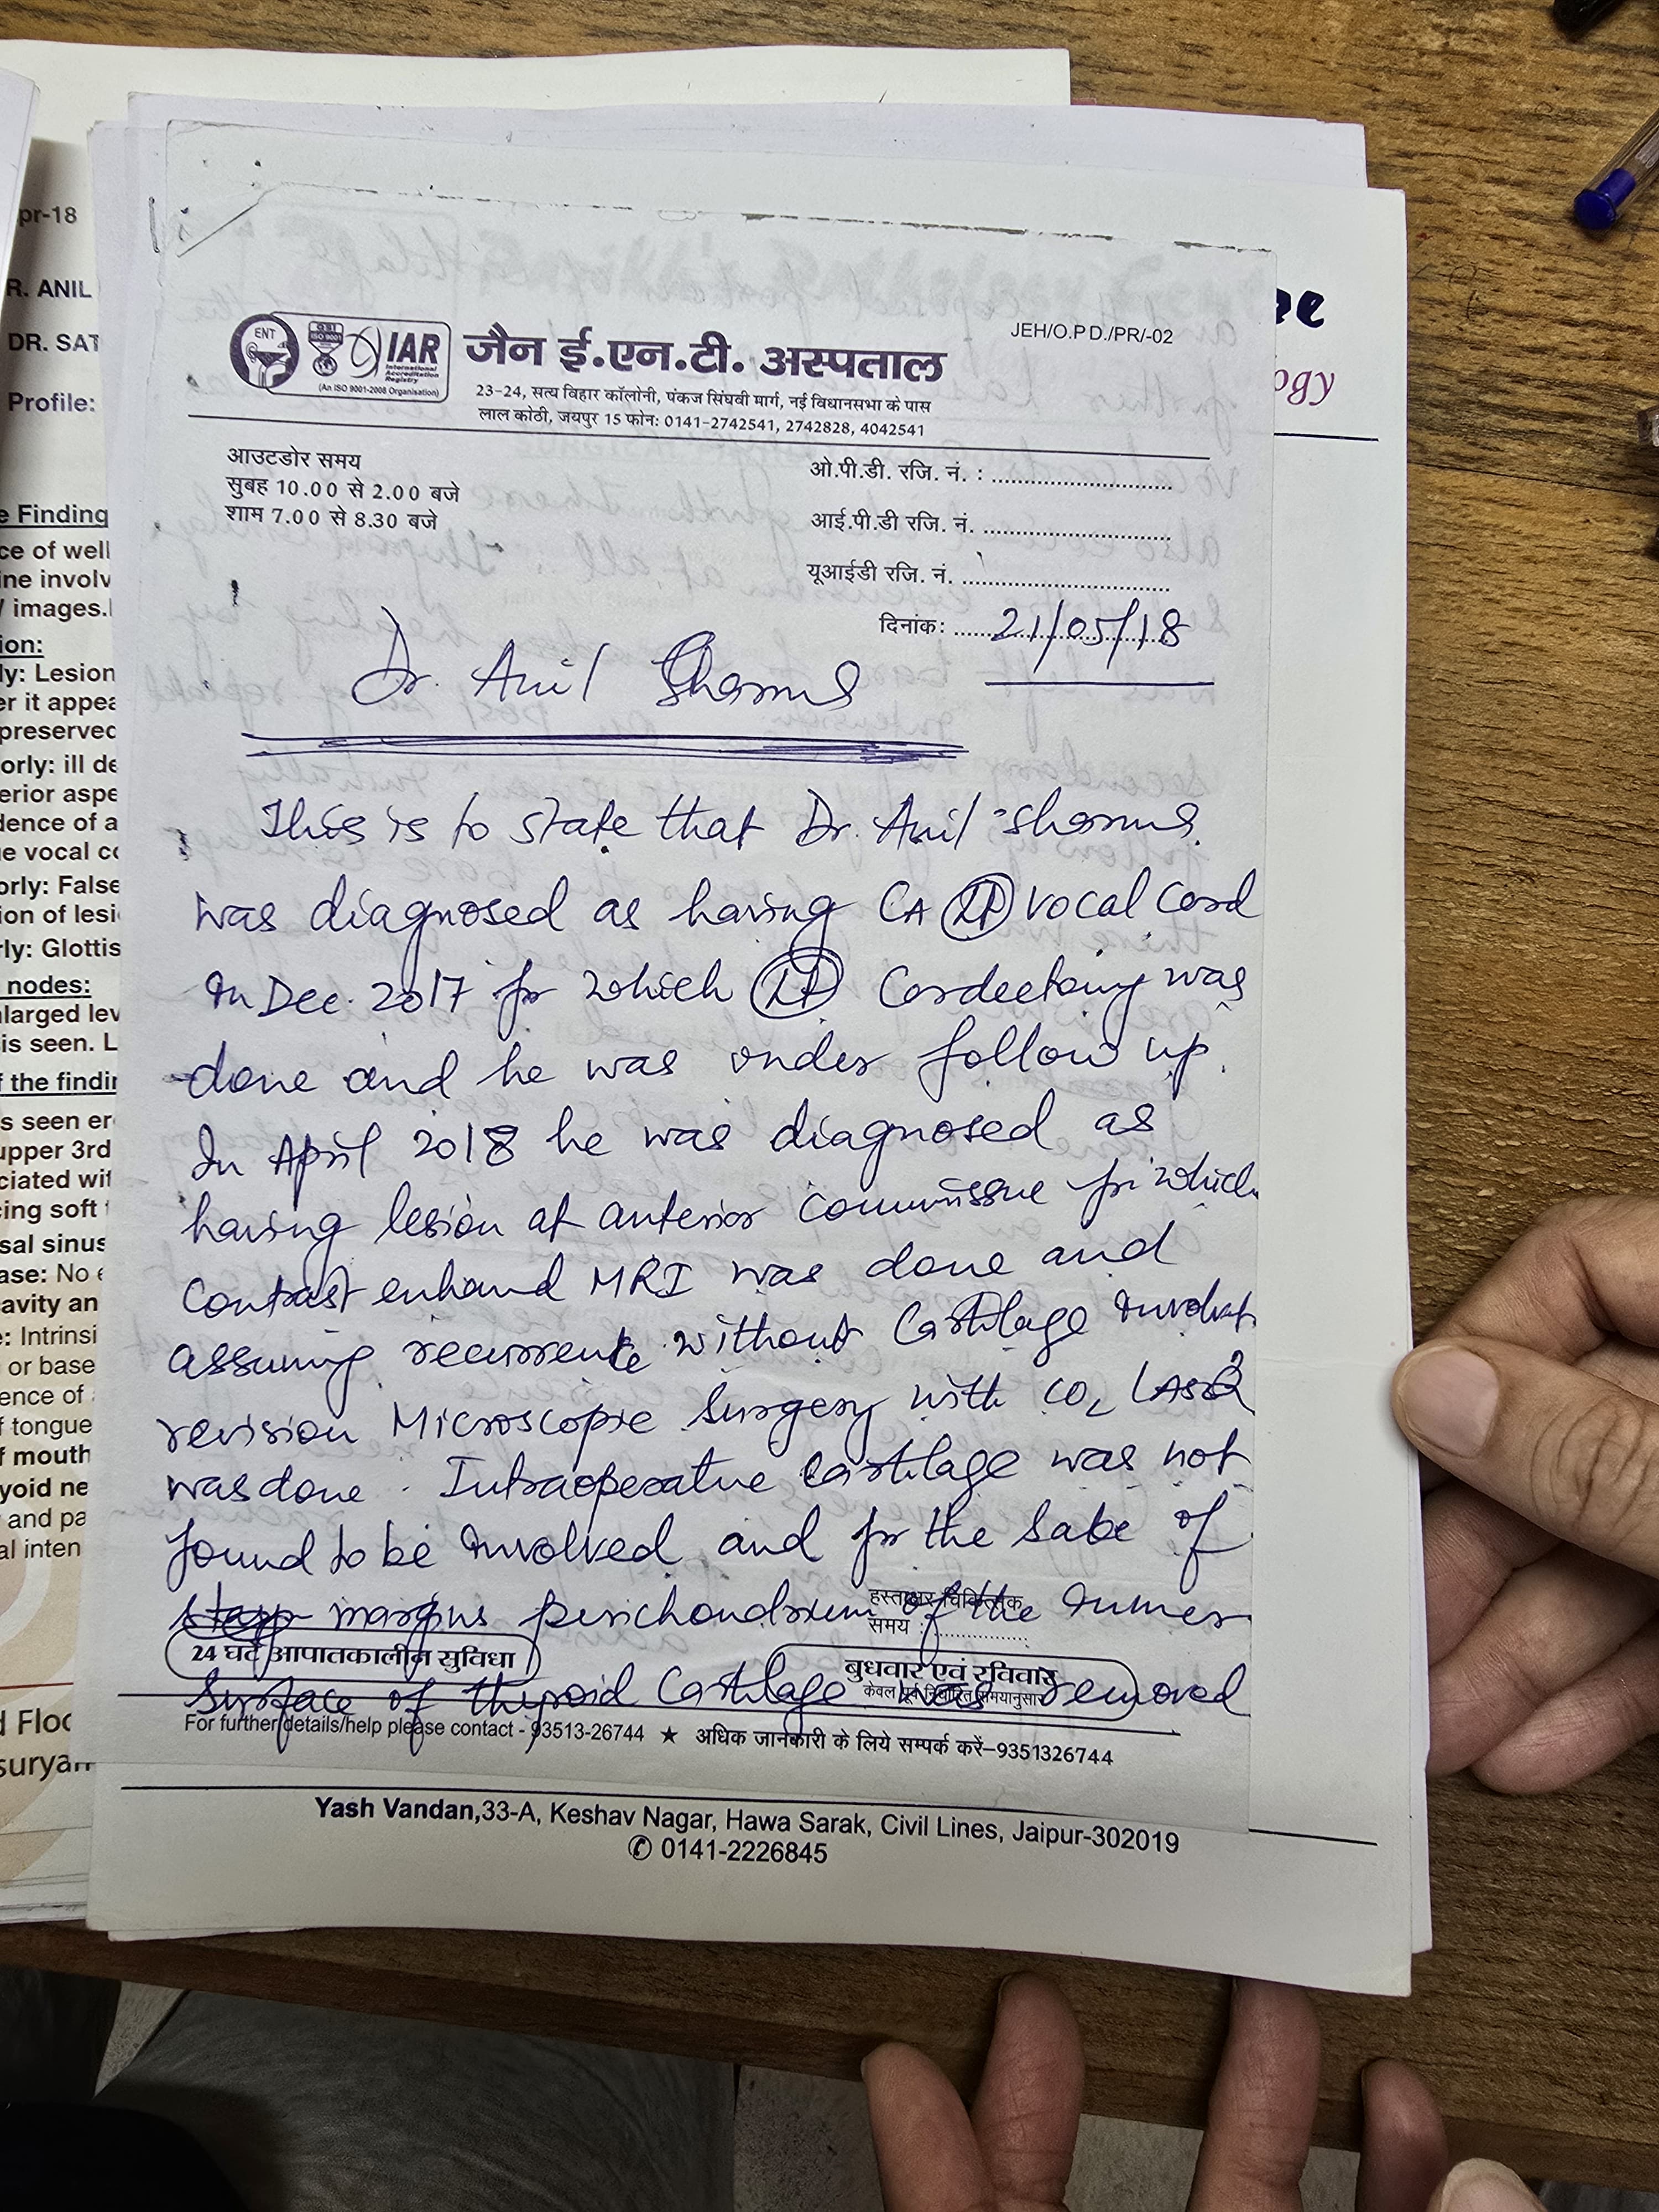 pr-18
R. ANIL
DR. SAT
Profile:
e Finding
ce of well
ine involv
/ images.
ion:
ly: Lesion
er it appea
preserved
orly: ill de
erior aspe
dence of a
e vocal co
orly: False
ion of lesi
rly: Glottis
nodes:
nlarged lev
is seen. L
f the findin
s seen er
upper 3rd
ciated wit
cing soft t
sal sinus
ase: No e
cavity an
e: Intrinsi
or base
ence of
f tongue
f mouth
yoid ne
and pa
al inten
d Floo
suryan
ee
ogy
JEH/O.P.D./PR/-02
ENT
QSI
ISO 9001
IAR
International
Accreditation
Registry
(An ISO 9001-2008 Organisation)
जैन ई.एन.टी. अस्पताल
23-24, सत्य विहार कॉलोनी, पंकज सिंघवी मार्ग, नई विधानसभा के पास
लाल कोठी, जयपुर 15 फोन: 0141-2742541, 2742828, 4042541
आउटडोर समय
सुबह 10.00 से 2.00 बजे
शाम 7.00 से 8.30 बजे
ओ.पी.डी. रजि. नं. : ..............................
आई.पी.डी रजि. नं. ..............................
यूआईडी रजि. नं. ..............................
दिनांक: ..... 21/05/18
Dr. Anil Sharma
This is to state that Dr. Anil Sharma
was diagnosed as having CA Lt vocal cord
In Dec. 2017 for which Lt Cordectomy was
done and he was under follow up.
In April 2018 he was diagnosed as
having lesion at anterior commissure for which
Contrast enhand MRI was done and
assuming recurrence without Cartilage Involvt
revision Microscopic Surgery with CO2 LASER
was done. Intraoperative Cartilage was not
found to be Involved and for the sake of
margins perichondrium of the Inner
surface of thyroid Cartilage was removed
हस्ताक्षर चिकित्सक
समय : ....................
24 घंटे आपातकालीन सुविधा
बुधवार एवं रविवार
केवल पूर्व निर्धारित समयानुसार
For further details/help please contact - 93513-26744 ★ अधिक जानकारी के लिये सम्पर्क करें-9351326744
Yash Vandan,33-A, Keshav Nagar, Hawa Sarak, Civil Lines, Jaipur-302019
✆ 0141-2226845